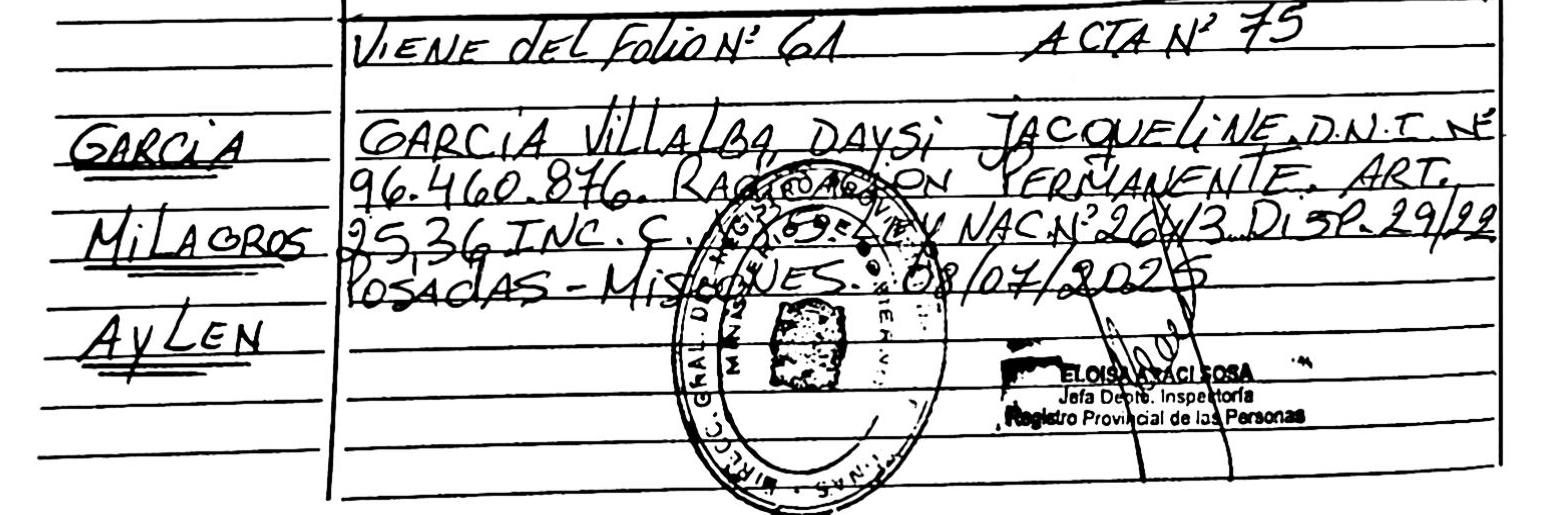 VIENE dEL Folio Nº 61 ACTA Nº 75
GARCIA
MiLAGROS
AyLEN
GARCIA VILLALBA, DAYSi JACQUELINE. D.N.I. Nº
96.460.876. PERMANENTE. ART.
25,36 INC. C. NAC. Nº 26413. DISP. 29/22
POSADAS - MISIONES. 08/07/2025
DIRECC. GRAL. DE REGISTRO
ELOISA ARACI SOSA
Jefa Depto. Inspectoría
Registro Provincial de las Personas